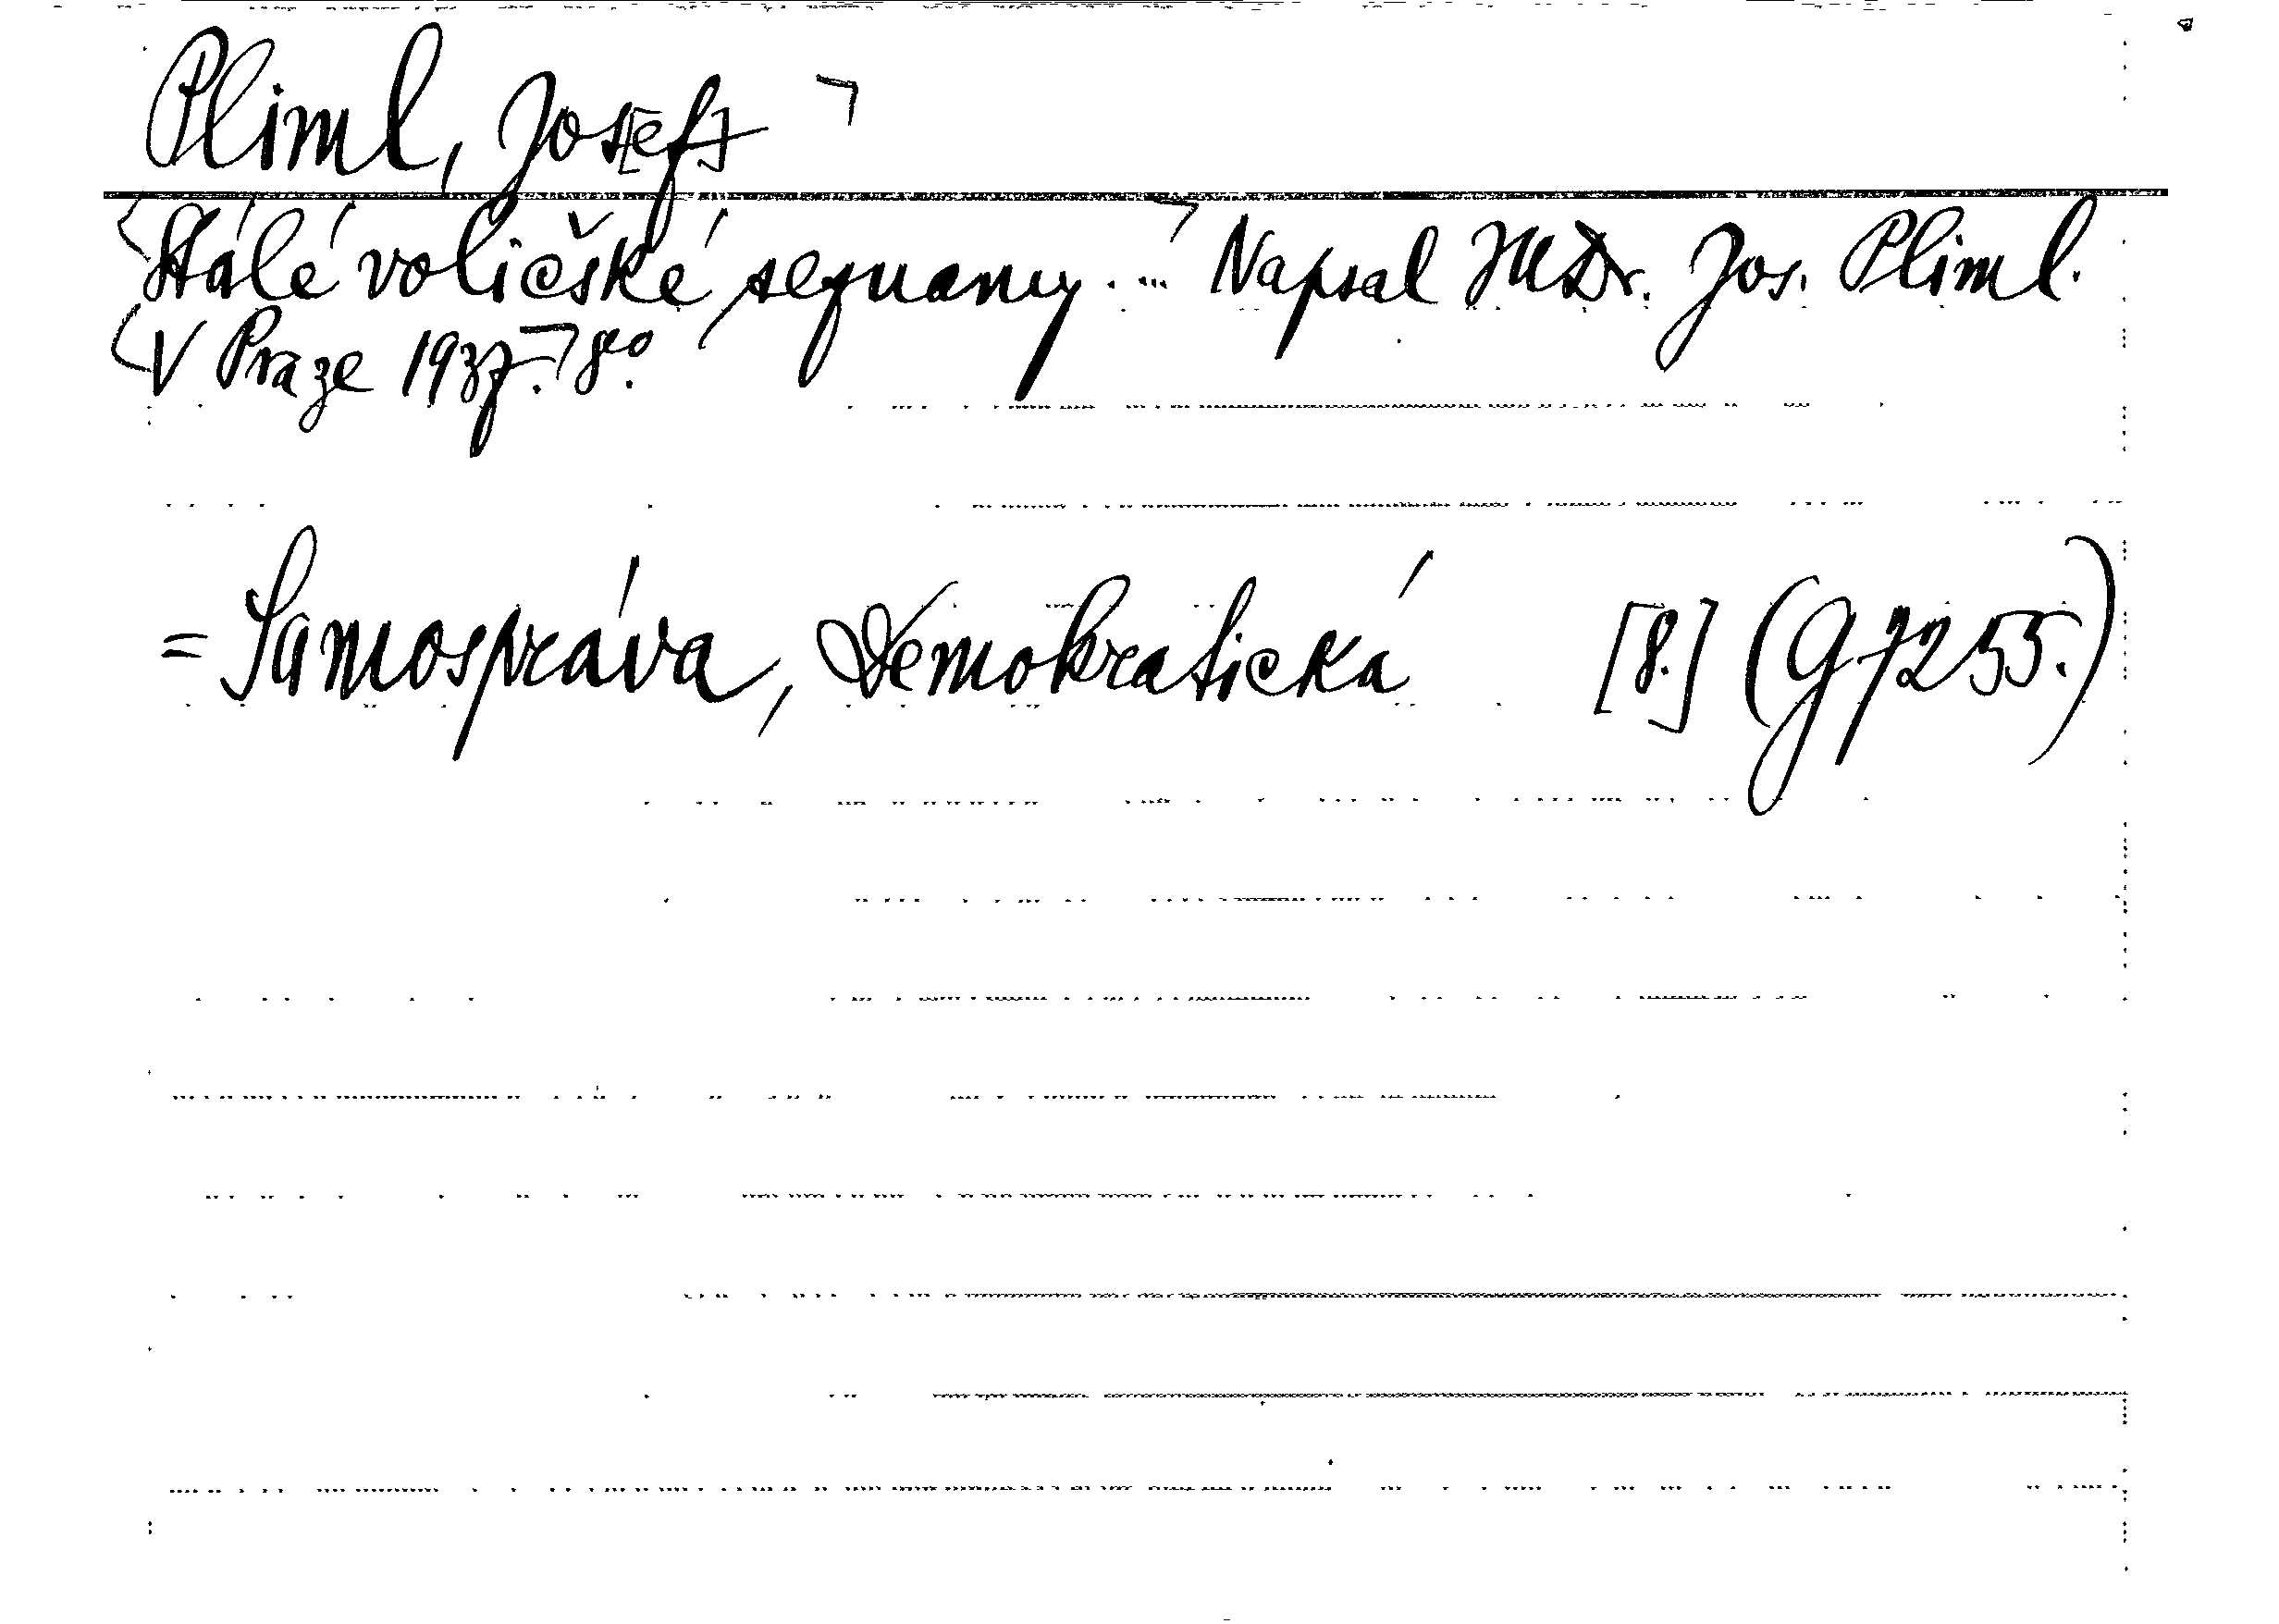 Pliml, Jos[ef]
Stálé voličské seznamy. ... Napsal JUDr. Jos. Pliml.
V Praze 1937. 8°.
= Samospráva, Demokratická [8.] (G 7255.)